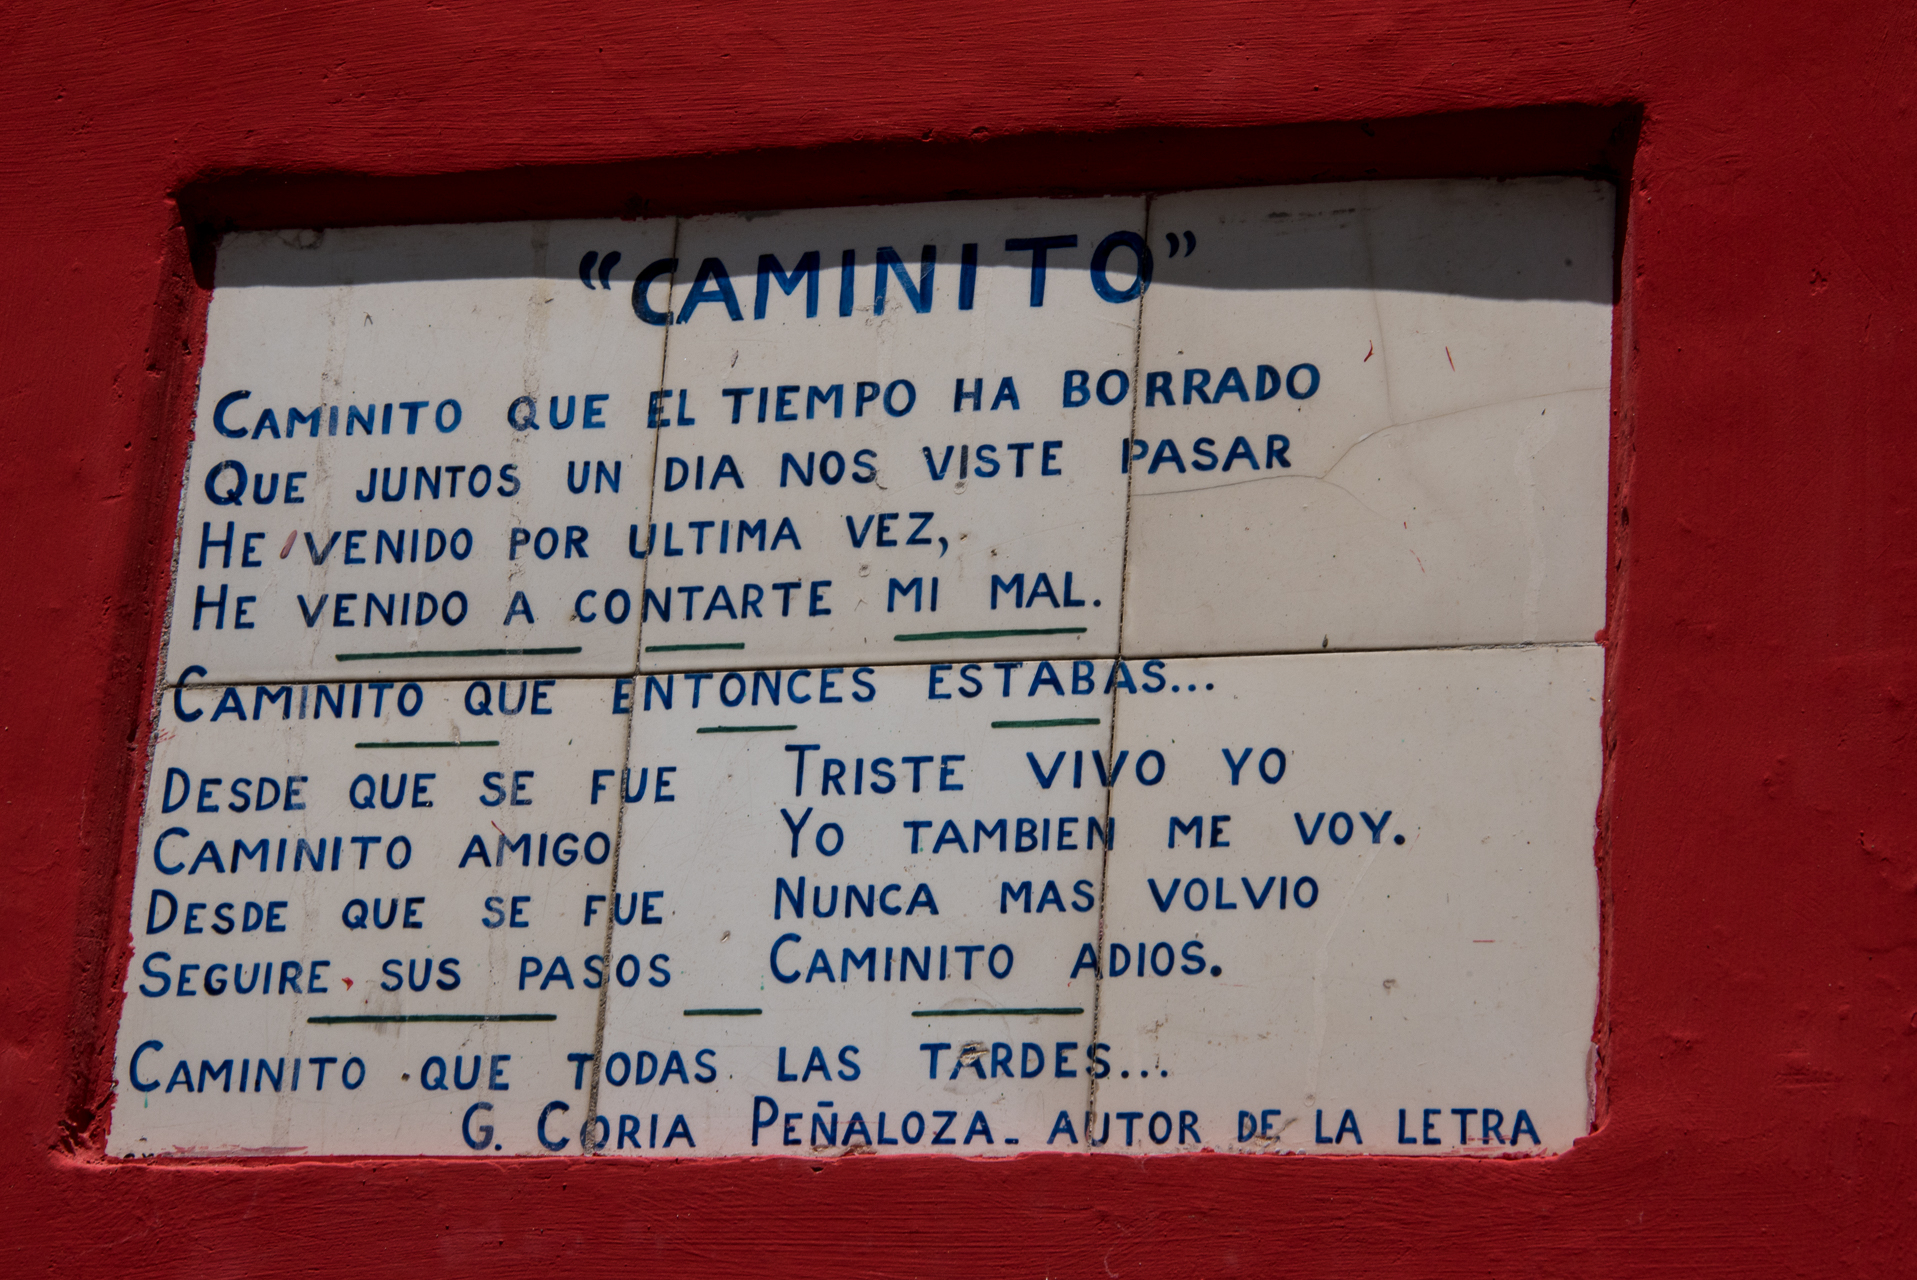 “CAMINITO”
CAMINITO QUE EL TIEMPO HA BORRADO
QUE JUNTOS UN DIA NOS VISTE PASAR
HE VENIDO POR ULTIMA VEZ,
HE VENIDO A CONTARTE MI MAL.
CAMINITO QUE ENTONCES ESTABAS...
DESDE QUE SE FUE
CAMINITO AMIGO
DESDE QUE SE FUE
SEGUIRE SUS PASOS
TRISTE VIVO YO
YO TAMBIEN ME VOY.
NUNCA MAS VOLVIO
CAMINITO ADIOS.
CAMINITO QUE TODAS LAS TARDES...
G. CORIA PEÑALOZA - AUTOR DE LA LETRA